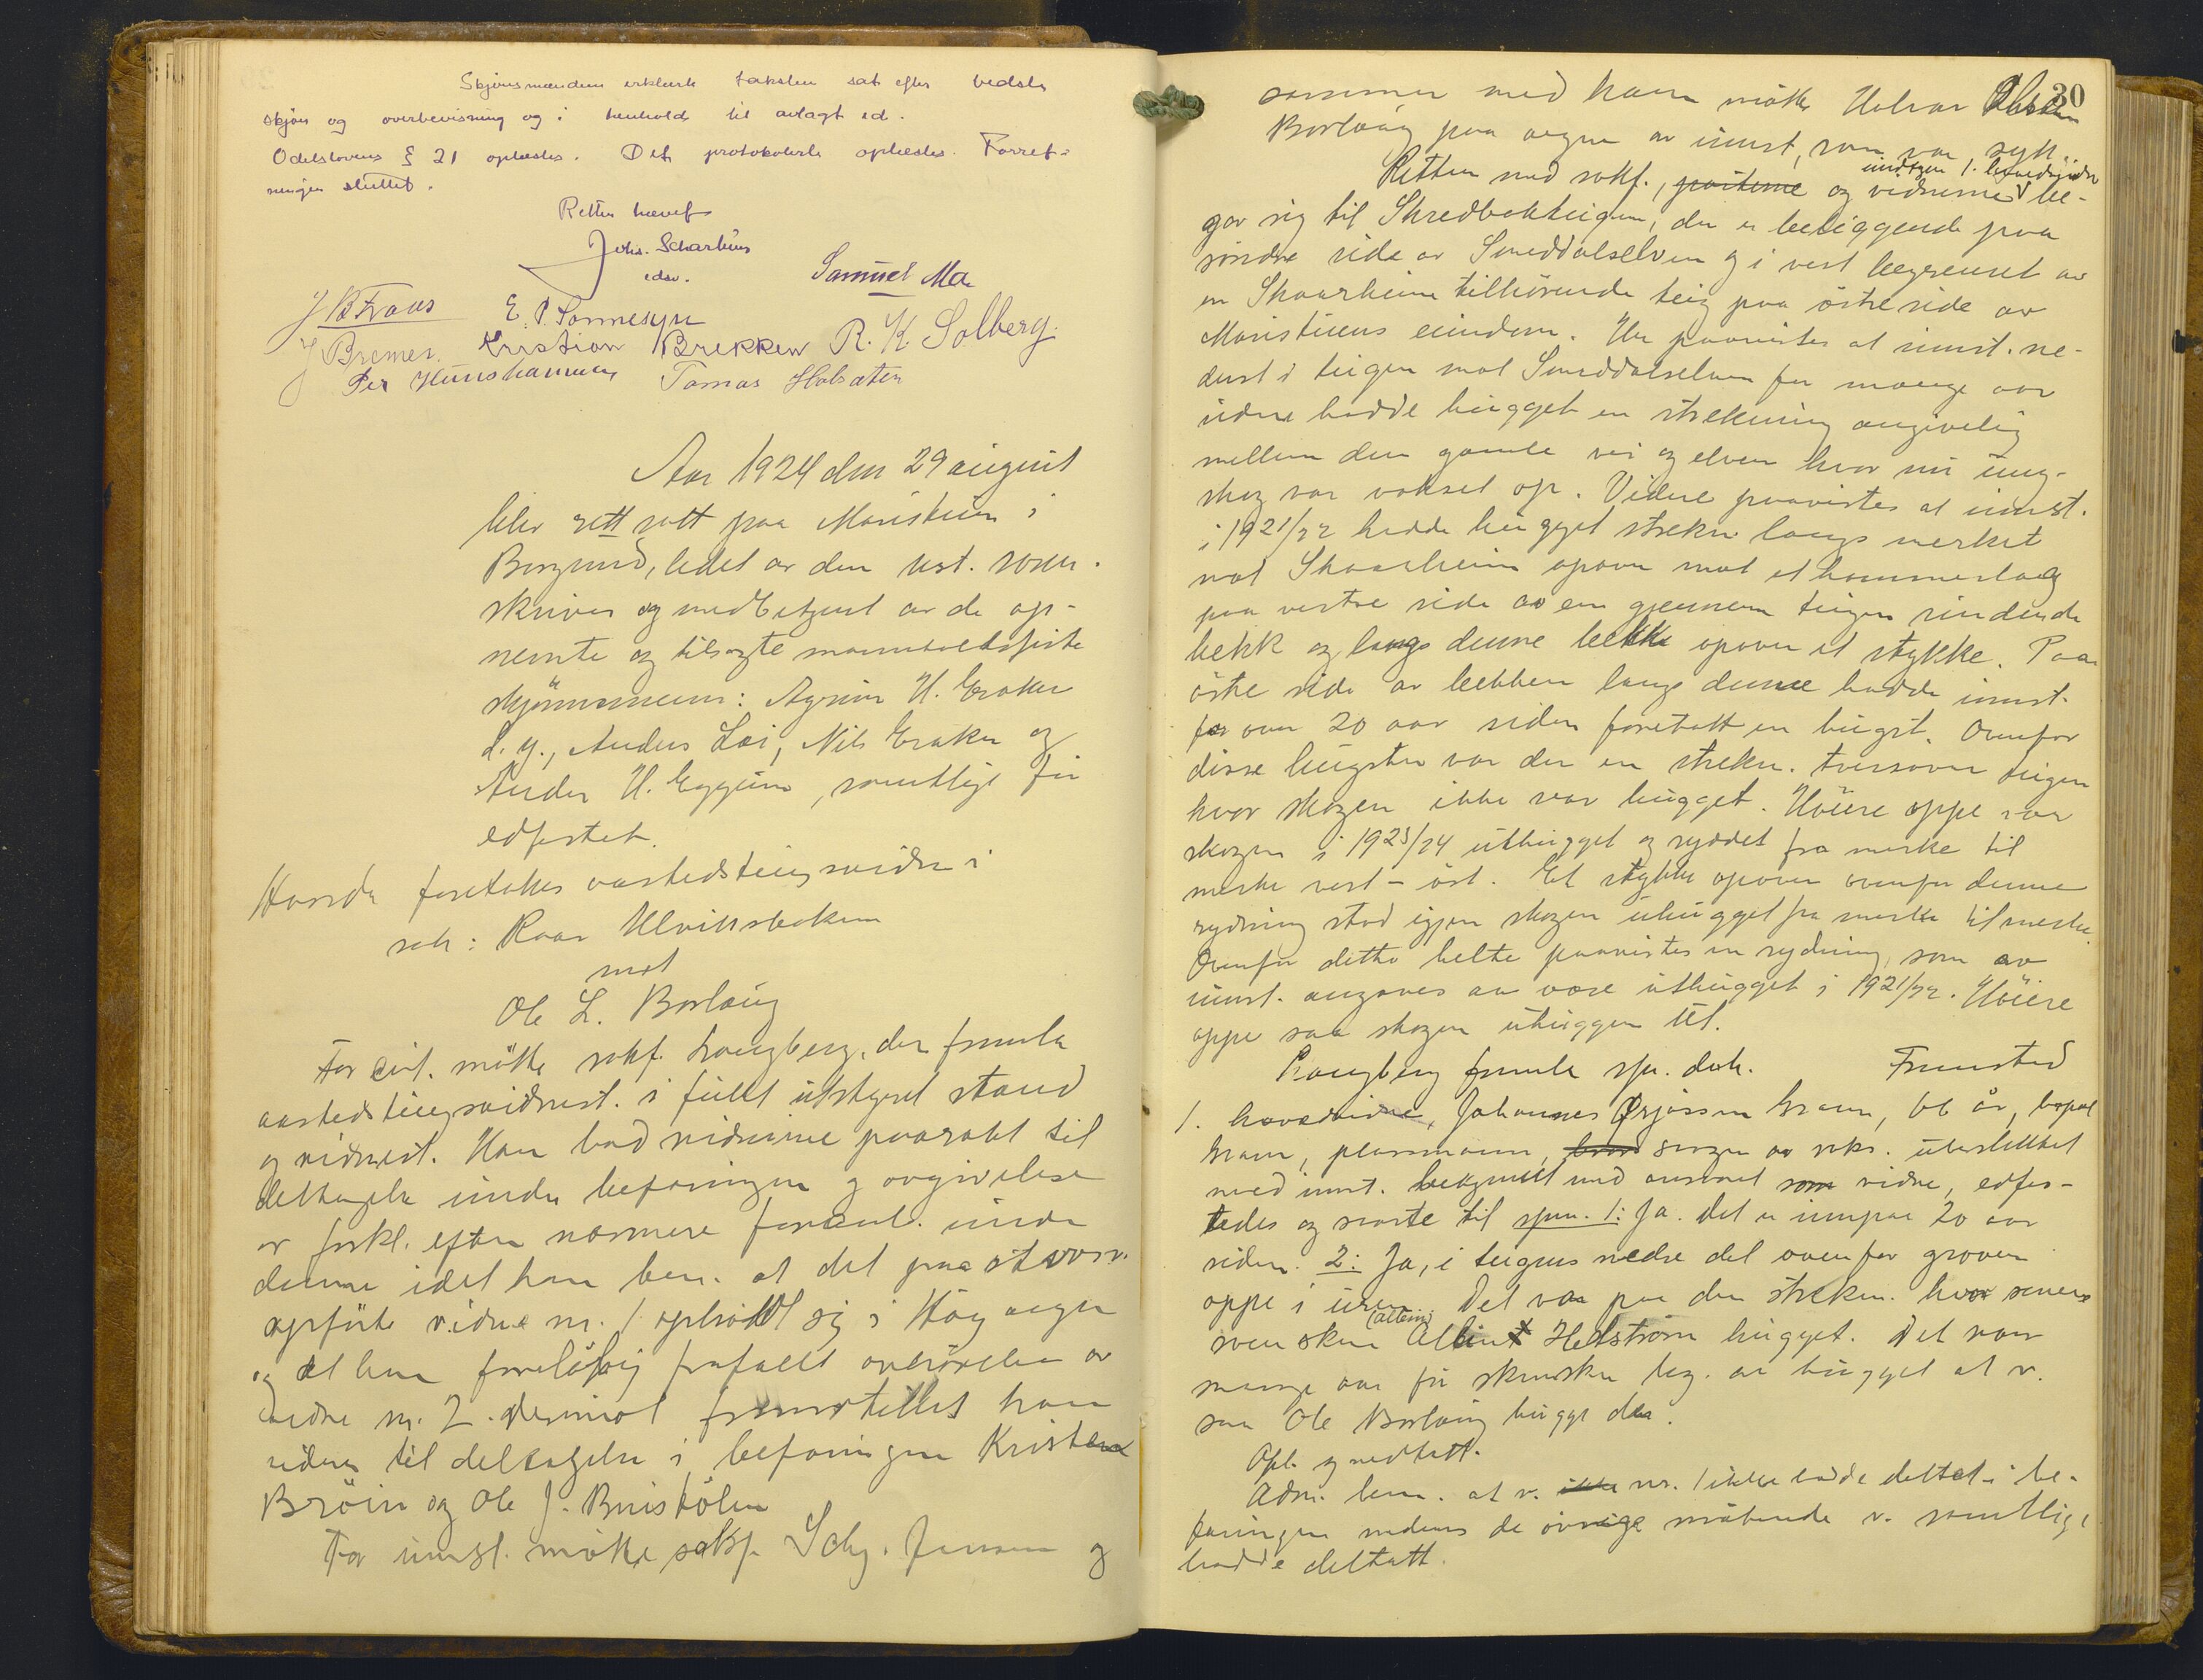 Skjönsmændene erklærte taksten sat efter bedste
skjön og overbevisning og i henhold til avlagt ed.
Odelslovens § 21 oplæstes. Det protokolerte oplæstes. Forret-
ningen sluttet.
Retten hævet
Johs. Scharhus
edsv.
Samuel Mo
E. P. Sønnesyn
Kristian Brekken R. K. Solberg.
J Bremer.
Per Hunshammer Tomas Holsæter
Aar 1924 den 29 august
blev rett satt paa Maristuen i
Borgund, ledet av den kst. soren-
skriver og med betjent av de op-
nevnte og tilsagte manntallsførte
skjønnsmenn: Agrim H. Eraker
d.y., Anders Loi, Nils Eraker og
Anders H. Eggum, samtlige før
edfestet.
Hvorda foretokes aastedstingsvidne i
sak: Roar Ulviksbakken
mot
Ole L. Borlaug
For cit. møtte sakf. Langberg, der fremla
aastedstingsvidnest. i fullt utstyret stand
og vidnest. Han bad vidnene paaropt til
deltagelse under befaringen og avgivelse
av forkl. efter nærmere foreval. under
denne idet han bem. at det paa stevn.
opførte vidne nr. 1 opholdt sig i Høyanger
og at han foreløbig frafallt avhørelse av
vidne nr. 2. Derimot fremstillet han
videre til deltagelse i befaringen Kristen
Brøin og Ole J. Buistølen
For innst. møtte sakf. Schj. Jensen og
30
sammen med ham møtte Halvar
Borlaug paa vegne av innst, som var syk.
Retten med sakf., partene og vidnerne undtagen 1. hovedvidne be-
gav sig til Skredbakteigen, der er beliggende paa
søndre side av Smeddalselven og i vest begrenset av
en Skaarheim tilhørende teig paa östre side av
Maristuens eiendom. Her paavistes at innst. ne-
derst i teigen mot Smeddalselven for mange aar
siden hadde hugget en strekning angivelig
mellem den gamle vei og elven hvor nu ung-
skog var vokset op. Videre paavistes at innst.
i 1921/22 hadde hugget strekn langs merket
mot Skaarheim opover mot et hammerlag
paa vestre side av en gjennem teigen rindende
bekk og langs denne bekk opover et stykke. Paa
östre side av bekken langs denne hadde innst.
for over 20 aar siden foretatt en hugst. Ovenfor
disse hugster var der en strekn. tversover teigen
hvor skogen ikke var hugget. Höiere oppe var
skogen i 1923/24 uthugget og ryddet fra merke til
merke vest - øst. Et stykke opover ovenfor denne
rydning stod igjen skogen uhugget fra merke til merke.
Ovenfor dette belte paavistes en rydning, som av
innst. angaves aa være uthugget i 1921/22. Höiere
oppe saa skogen uhuggen ut.
Langberg fremla spm. dok. Fremsted
1. hovedvidne, Johannes Ørjassen Gram, 66 år, bopæl
Gram, plassmann, svoger av saks. ubeslektet
med innst. bekjent med ansvaret som vidne, edfes-
tedes og svarte til spm. 1: Ja. Det er innpaa 20 aar
siden. 2: Ja, i teigens nedre del ovenfor groven
oppe i uren. Det var paa den strekn. hvor senere
svensken Albin (Albin) Hedstrøm hugget. Det var
mange aar før svensken beg. at hugget at v.
saa Ole Borlaug hugge der.
Opl. og vedtatt.
Adm. bem. at v. nr. 1 ikke hadde deltatt i be-
faringen medens de øvrige møtende v. samtlige
hadde deltatt.